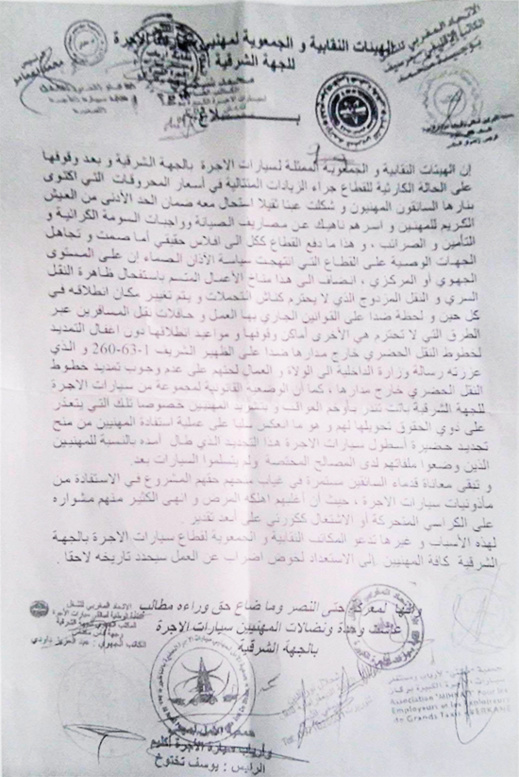 الهيئات النقابية و الجمعوية لمهنيي سيارات الاجرة
للجهة الشرقية
بـــــــلاغ
إن الهيئات النقابية و الجمعوية الممثلة لسيارات الاجرة بالجهة الشرقية و بعد وقوفها
على الحالة الكارثية للقطاع جراء الزيادات المتتالية في أسعار المحروقات التي اكتوى
بنارها السائقون المهنيون و شكلت عبئا ثقيلا استحال معه ضمان الحد الأدنى من العيش
الكريم للمهنيين و اسرهم ناهيك عن مصاريف الصيانة وواجبات السومة الكرائية و
التأمين و الضرائب ، و هذا ما دفع القطاع ككل الى افلاس حقيقي أما صمت و تجاهل
الجهات الوصية على القطاع التي انتهجت سياسة الآذان الصماء ان على المستوى
الجهوي أو المركزي ، انضاف الى هذا مناخ الأعمال المتسم باستفحال ظاهرة النقل
السري و النقل المزدوج الذي لا يحترم كناش التحملات و يتم تغيير مكان انطلاقه في
كل حين و لحظة ضدا على القوانين الجاري بها العمل و حافلات نقل المسافرين عبر
الطرق التي لا تحترم هي الأخرى أماكن وقوفها و مواعيد انطلاقها دون اغفال التمديد
لخطوط النقل الحضري خارج مدارها ضدا على الظهير الشريف 1-63-260 و الذي
عززته رسالة وزارة الداخلية الى الولاة و العمال لحثهم على عدم وجوب تمديد خطوط
النقل الحضري خارج مدارها ، كما أن الوضعية القانونية لمجموعة من سيارات الاجرة
للجهة الشرقية باتت تنذر بأوخم العواقب و بتشريد المهنيين خصوصا تلك التي يتعذر
على ذوي الحقوق تحويلها لهم و هو ما انعكس سلبا على عملية استفادة المهنيين من منح
تجديد حضيرة أسطول سيارات الاجرة هذا التجديد الذي طال أمده بالنسبة للمهنيين
الذين وضعوا ملفاتهم لدى المصالح المختصة ولم يتسلموا السيارات بعد.
و تبقى معاناة قدماء السائقين مستمرة في غياب منحهم حقهم المشروع في الاستفادة من
مأذونيات سيارات الاجرة ، حيث أن أغلبهم اهلكه المرض و انهى الكثير منهم مشواره
على الكراسي المتحركة أو الاشتغال ككورتي على أبعد تقدير .
لهذه الأسباب و غيرها تدعو المكاتب النقابية و الجمعوية لقطاع سيارات الاجرة بالجهة
الشرقية كافة المهنيين إلى الاستعداد لخوض اضراب عن العمل سيحدد تاريخه لاحقا .
لمعركة حتى النصر وما ضاع حق وراءه مطالب
عاشت وحدة ونضالات المهنيين سيارات الاجرة
بالجهة الشرقية
الاتحاد المغربي للشغل
الكاتب الجهوي : عبد العزيز داودي
جمعية الأمل
وأرباب سيارة الأجرة إقليم
الرايس : يوسف تختوخ
Association
Employeurs et les Exploitants
de Grands Taxis BERKANE